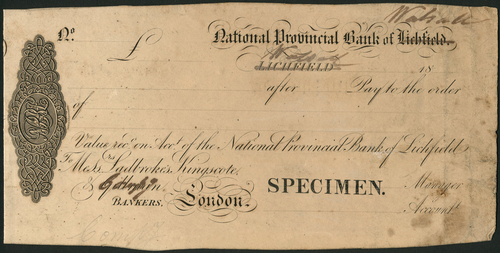 Walsall
No. £ National Provincial Bank of Lichfield.
Walsall
LICHFIELD 18
after Pay to the order
of
Value rec'd. on Acc't. of the National Provincial Bank of Lichfield
To Mess'rs. Ladbrokes, Kingscote,
&
BANKERS, London. SPECIMEN. Manager
Account't.